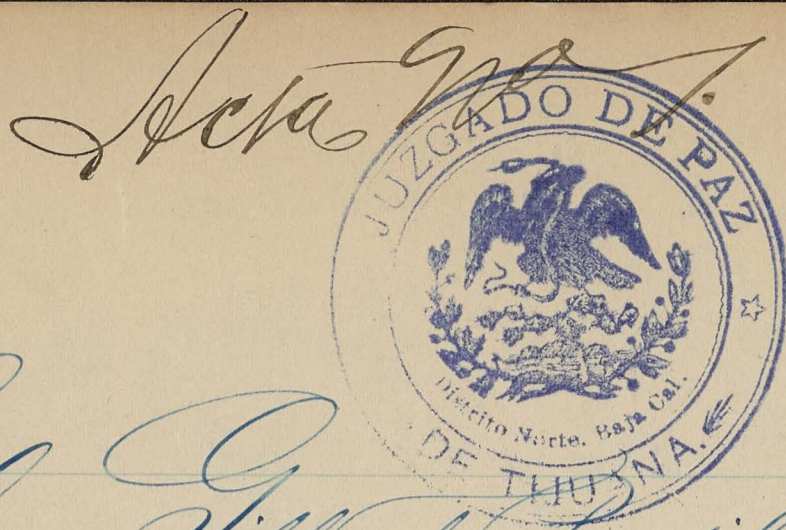 Acta No 1.
JUZGADO DE PAZ
Distrito Norte. Baja Cal.
DE TIJUANA.